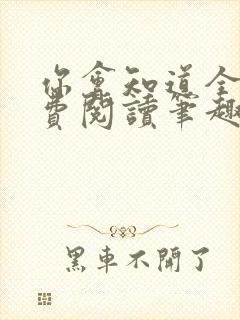 你會知道全
費閱讀筆趣
黑車不開了